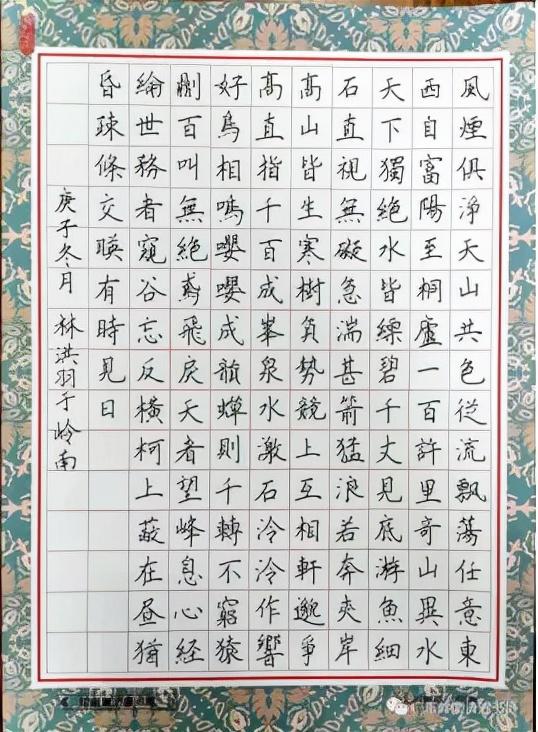 風煙俱淨天山共色從流飄蕩任意東
西自富陽至桐廬一百許里奇山異水
天下獨絕水皆縹碧千丈見底游魚細
石直視無礙急湍甚箭猛浪若奔夾岸
髙山皆生寒樹負勢競上互相軒邈爭
髙直指千百成峯泉水激石泠泠作響
好鳥相鳴嚶嚶成韻蟬則千轉不窮猿
則百叫無絕鳶飛戾天者望峰息心經
綸世務者窺谷忘反橫柯上蔽在晝猶
昏疎條交暎有時見日
庚子冬月 林洪羽于岭南